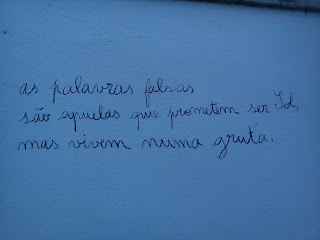 as palavras falsas
são aquelas que prometem ser Sol,
mas vivem numa gruta.